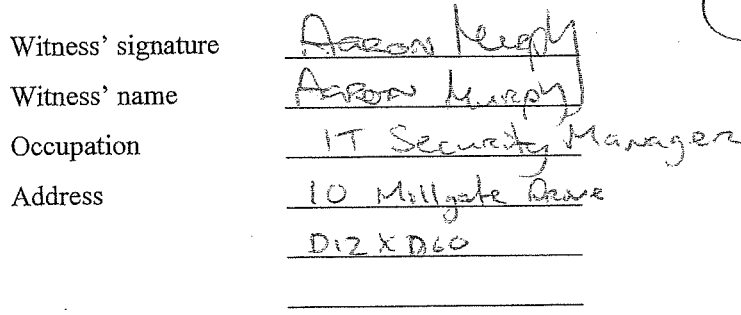 Witness' signature Aaron Murphy
Witness' name Aaron Murphy
Occupation IT Security Manager
Address 10 Millgate Drive
D12 XD60